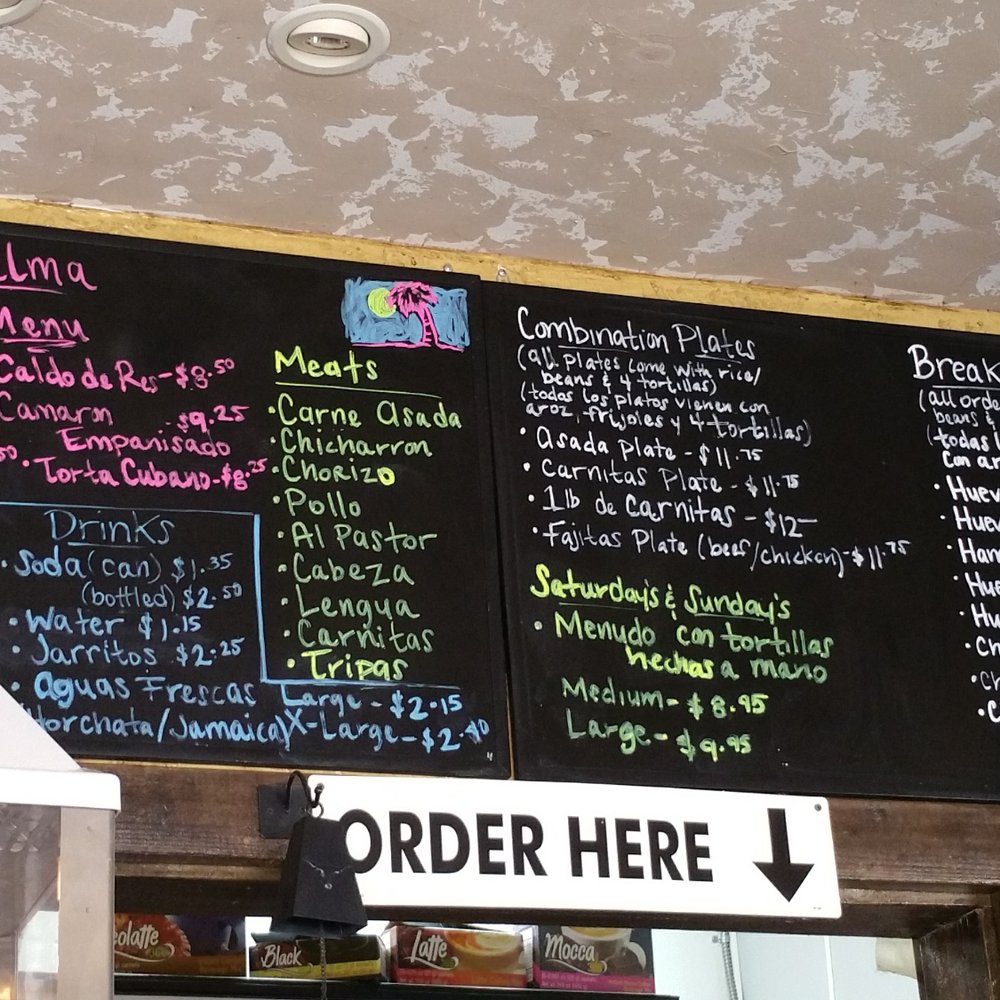 Menu
Caldo de Res - $8.50
Camaron $9.25
Empanisado
• Torta Cubano - $8.25
Drinks
• Soda (can) $1.35
(bottled) $2.50
• Water $1.15
• Jarritos $2.25
• Aguas Frescas Large - $2.15
Horchata/Jamaica) X-Large - $2.40
Meats
• Carne Asada
• Chicharron
• Chorizo
• Pollo
• Al Pastor
• Cabeza
• Lengua
• Carnitas
• Tripas
Combination Plates
(all plates come with rice/
beans & 4 tortillas)
(todos los platos vienen con
aroz, frijoles y 4 tortillas)
• Asada Plate - $11.75
• Carnitas Plate - $11.75
• 1lb de Carnitas - $12-
• Fajitas Plate (beef/chicken) - $11.75
Saturday's & Sunday's
• Menudo con tortillas
hechas a mano
Medium - $8.95
Large - $9.95
(all
beans &
(todas
ORDER HERE
Black
Latte
Mocca